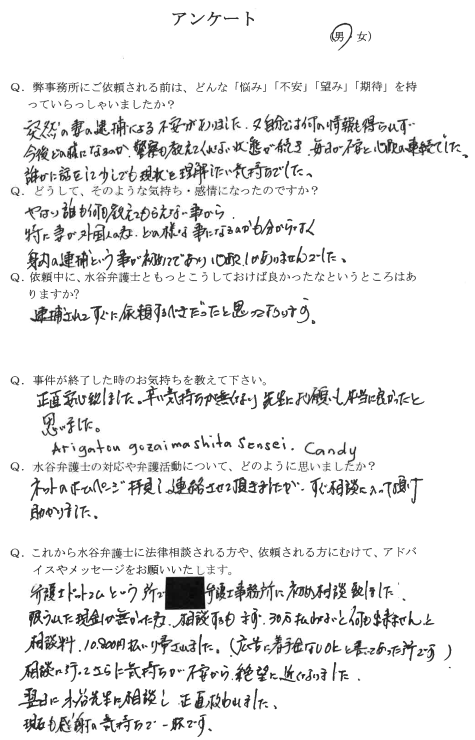 アンケート
(男・女)
Q．弊事務所にご依頼される前は、どんな「悩み」「不安」「望み」「期待」を持
っていらっしゃいましたか？
突然の妻の逮捕による不安がありました。又自分では何の情報も得られず
今後どの様になるのか、警察も教えてくれない状態が続き、毎日が不安と心配の連続でした。
誰かに話をして少しでも現状を理解したい気持ちでした。
Q．どうして、そのような気持ち・感情になったのですか？
やはり誰も何も教えてもらえない事から
特に妻が外国人の為、どの様な事になるのかも分からなく
身内の逮捕という事が初めてであり心配しかありませんでした。
Q．依頼中に、水谷弁護士ともっとこうしておけば良かったなというところはあ
りますか?
逮捕されてすぐに依頼するべきだったと思っております。
Q．事件が終了した時のお気持ちを教えて下さい。
正直安心致しました。辛い気持ちが無くなり先生にお願いし本当に良かったと
思いました。
Arigatou gozaimashita Sensei. Candy
Q．水谷弁護士の対応や弁護活動について、どのように思いましたか？
ネットのホームページ拝見し連絡させて頂きましたが、すぐ相談に入って頂け
助かりました。
Q．これから水谷弁護士に法律相談される方や、依頼される方にむけて、アドバ
イスやメッセージをお願いいたします。
弁護士ドットコムという所で 弁護士事務所に初め相談致しました。
まとまった現金が無かった為、相談するも まず、30万払わないと何も出来ませんと
相談料、10,800円払い帰されました。(広告に着手金なしOKと書いてあった所です)
相談に行ってさらに気持ちが不安から絶望に近くなりました。
翌日に水谷先生に相談し 正直救われました。
現在も感謝の気持ちで一杯です。